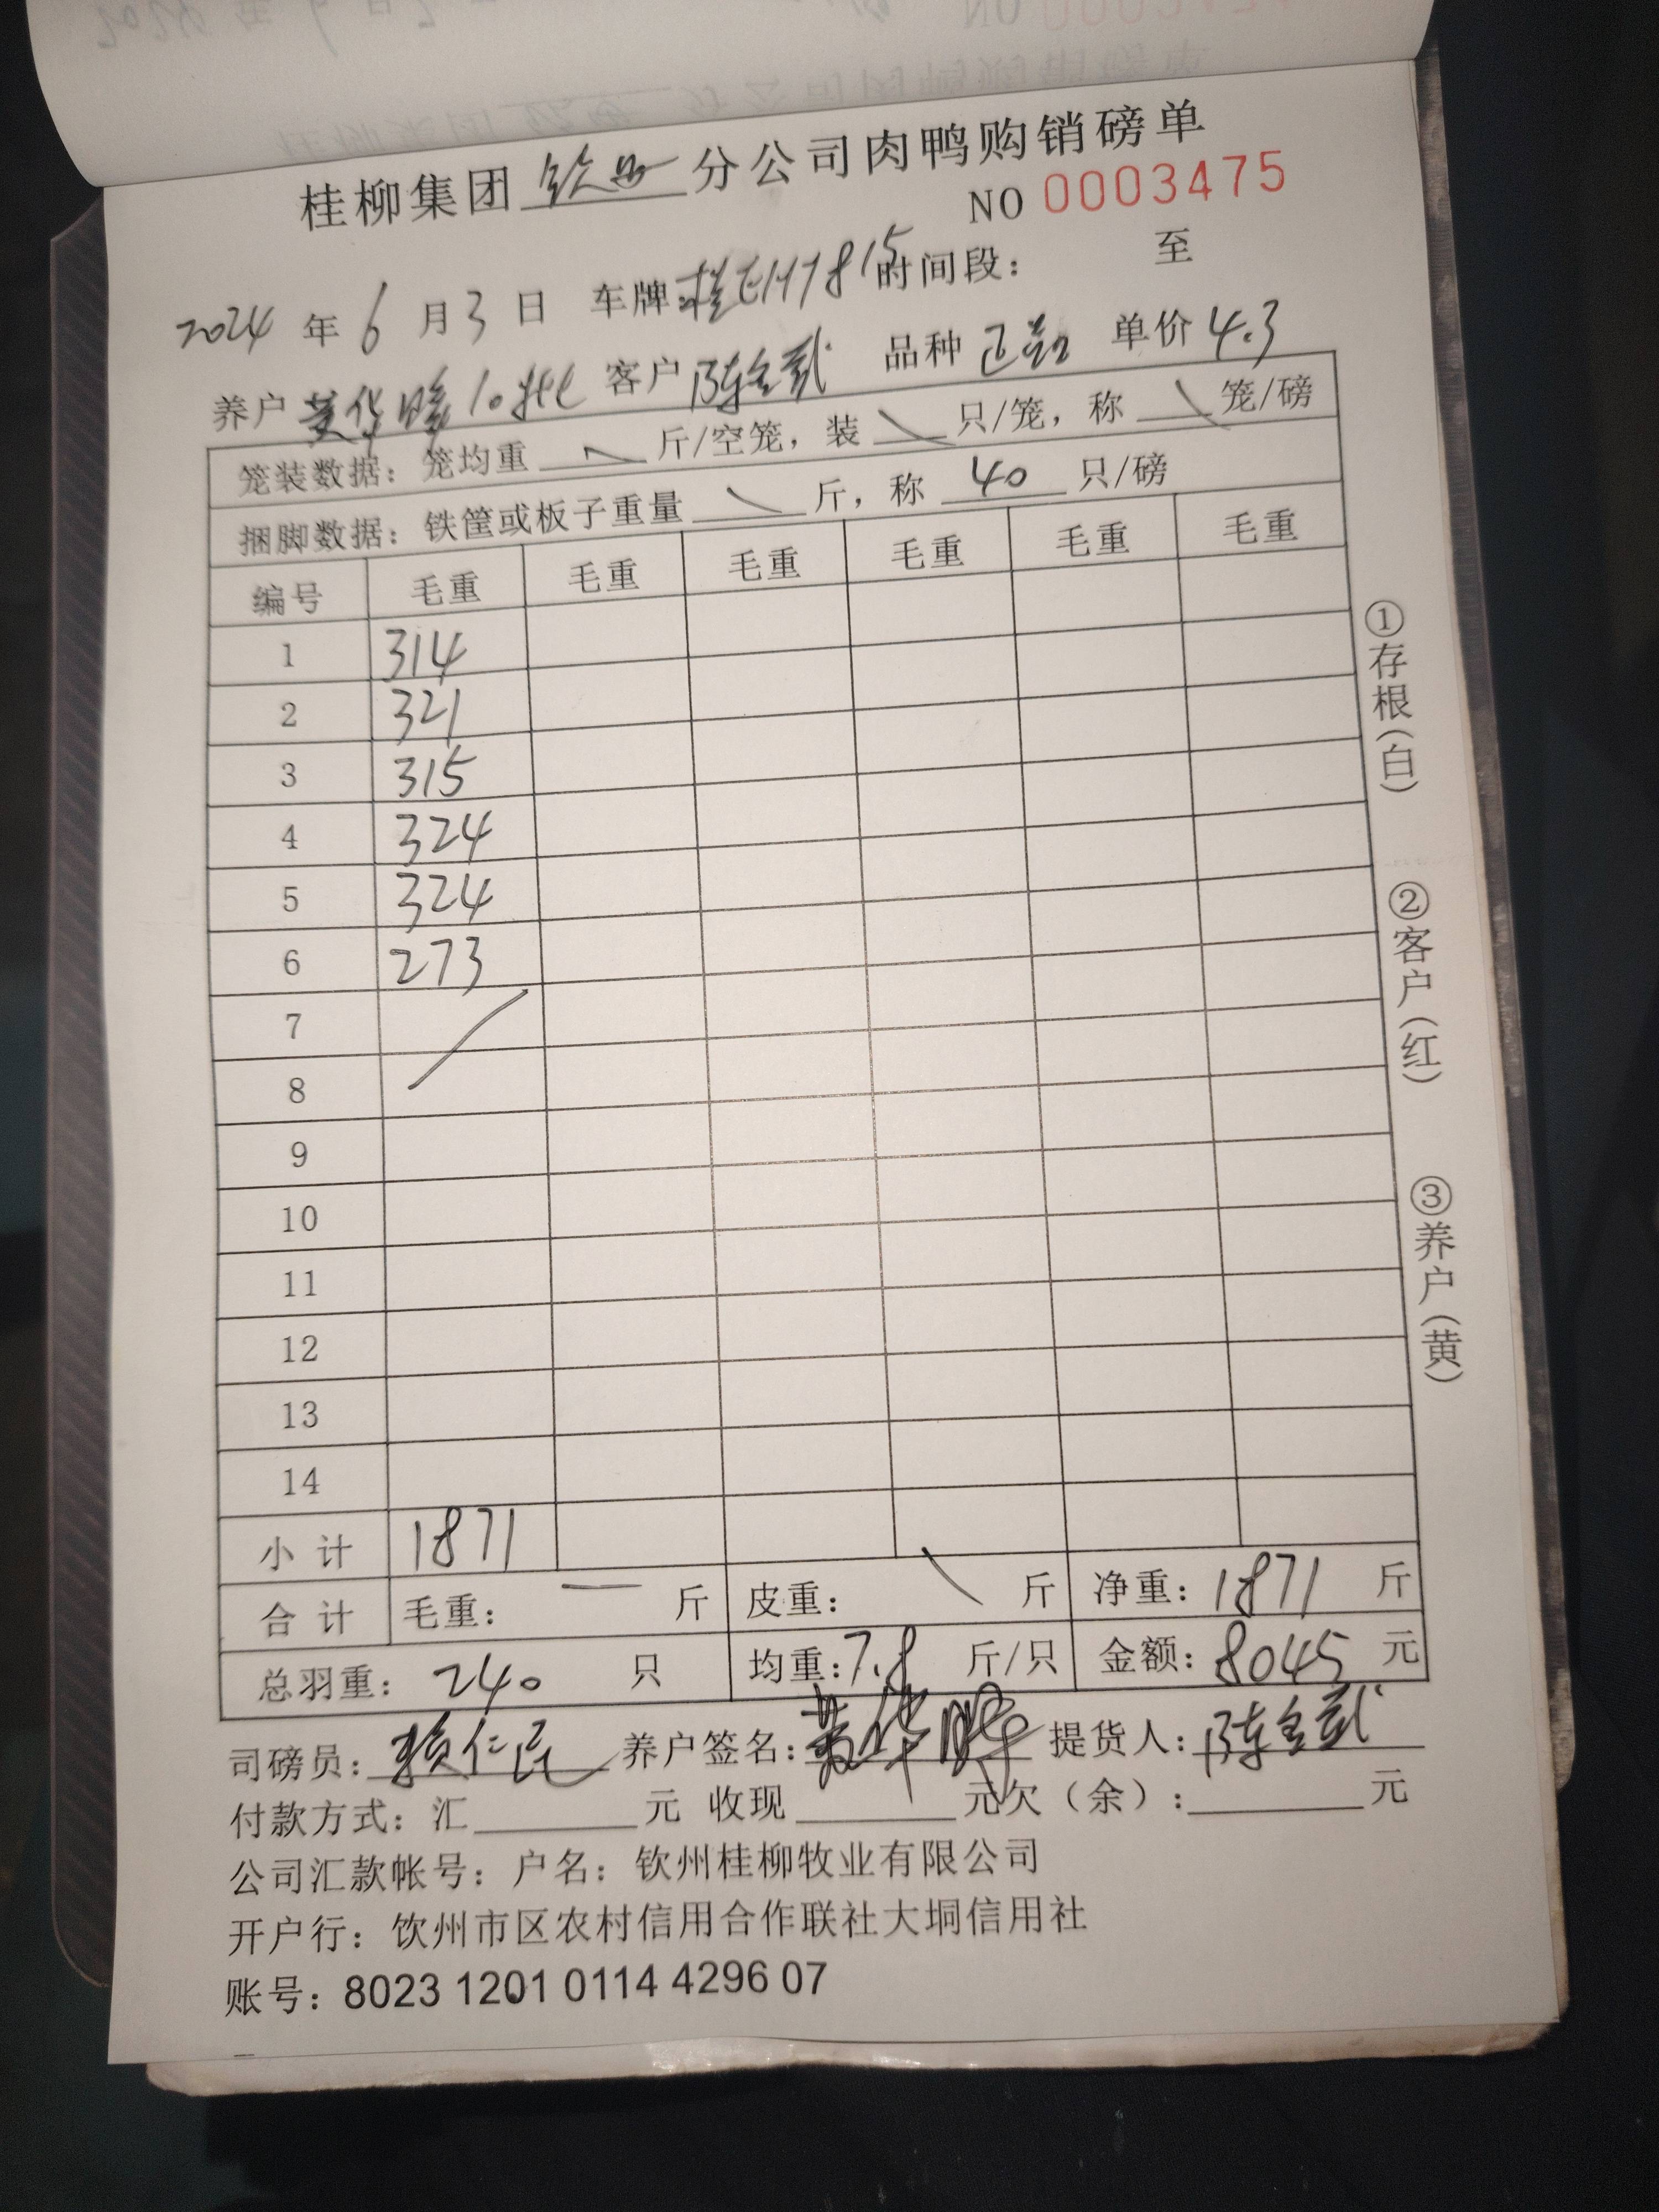 桂柳集团 钦州 分公司肉鸭购销磅单
NO 0003475
2024 年 6 月 3 日 车牌: 时间段: 至
养户 黄华 10批 客户 陈金武 品种 正品 单价 4.3
笼装数据: 笼均重 斤/空笼, 装 只/笼, 称 笼/磅
捆脚数据: 铁筐或板子重量 斤, 称 40 只/磅
编号 毛重 毛重 毛重 毛重 毛重 毛重
1 314
2 321
3 315
4 324
5 324
6 273
7
8
9
10
11
12
13
14
小计 1871
合计 毛重: 一 斤 皮重: 斤 净重: 1871 斤
总羽重: 240 只 均重: 7.8 斤/只 金额: 8045 元
司磅员: 赖仁民 养户签名: 黄华 提货人: 陈金武
付款方式: 汇 元 收现 元欠(余): 元
公司汇款帐号: 户名: 钦州桂柳牧业有限公司
开户行: 钦州市区农村信用合作联社大垌信用社
账号: 8023 1201 0114 4296 07
①存根(白)
②客户(红)
③养户(黄)